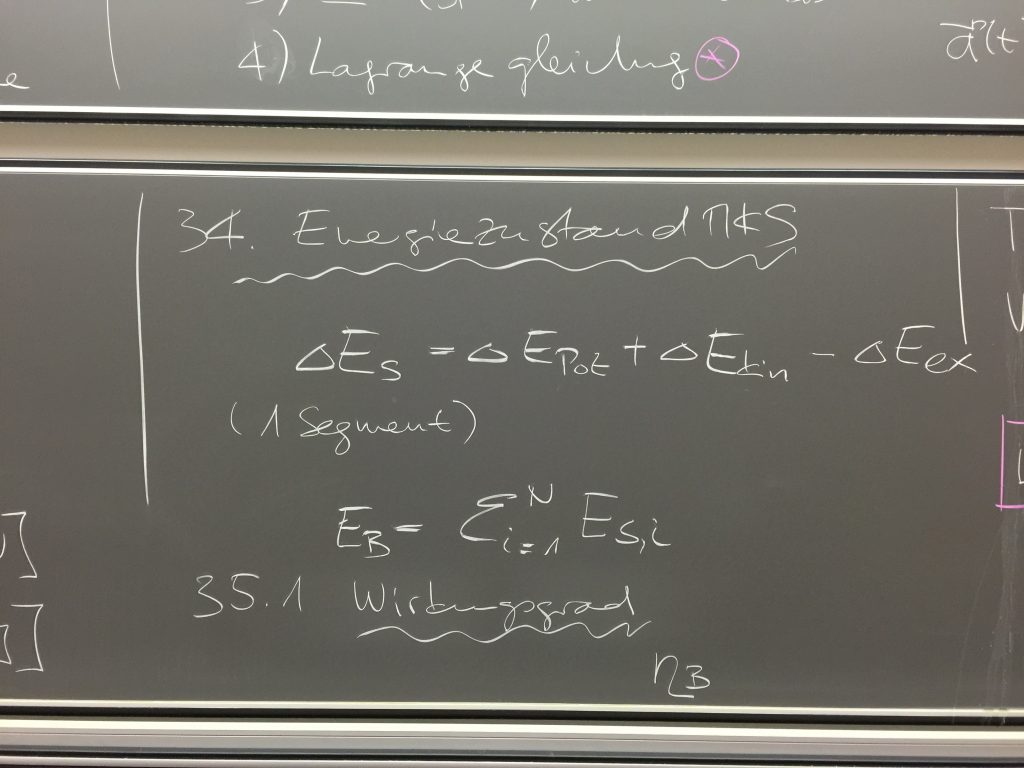 4) Lagrange gleichung *
34. Energiezustand MKS
ΔE_S = ΔE_Pot + ΔE_kin - ΔE_ex
(1 Segment)
E_B = Σ_{i=1}^N E_{S,i}
35.1 Wirkungsgrad
η_B